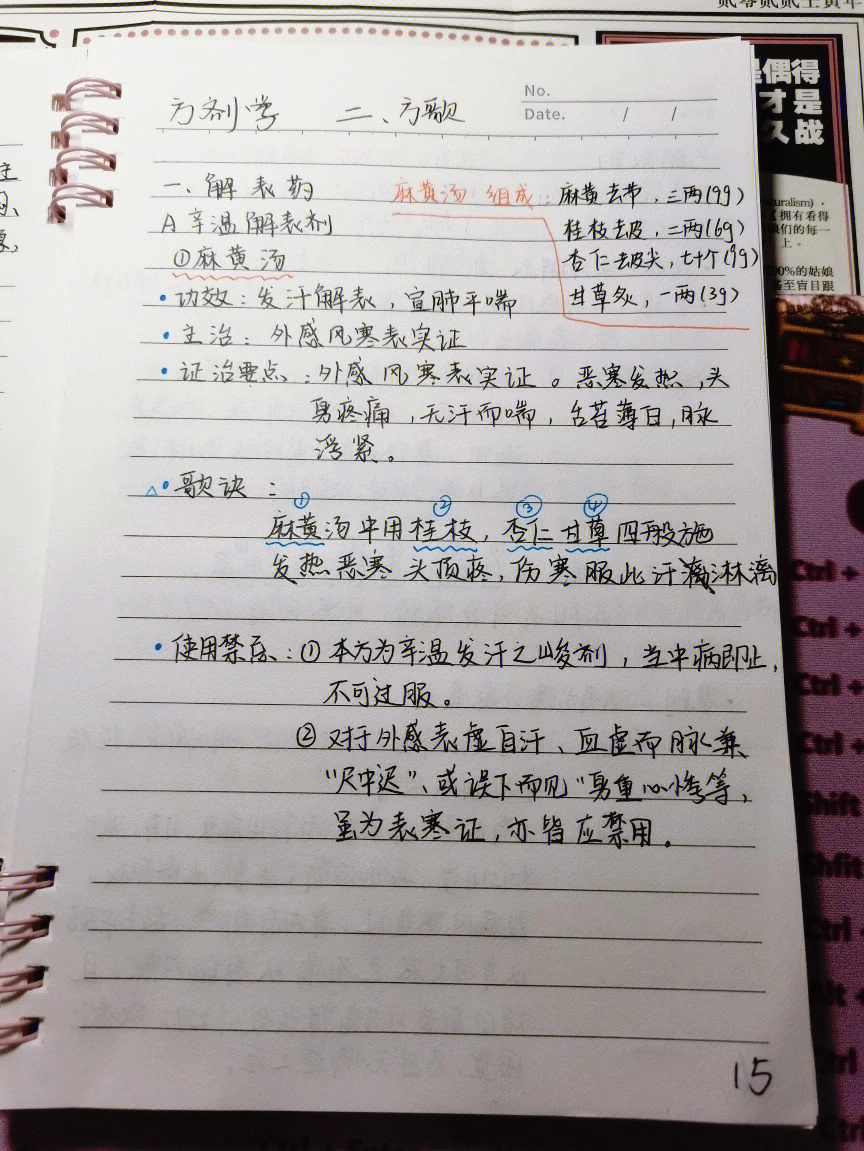 贰零贰贰壬寅年
偶得
才是
久战
uralism)，
拥有看得
们的每一
上。
00%的姑娘
甚至盲目跟
方剂学 二、方歌
No.
Date. / /
一、解表药
A 辛温解表剂
①麻黄汤
麻黄汤 组成：麻黄去节，三两(9g)
桂枝去皮，二两(6g)
杏仁去皮尖，七十个(9g)
甘草炙，一两(3g)
·功效：发汗解表，宣肺平喘
·主治：外感风寒表实证
·证治要点：外感风寒表实证。恶寒发热，头
身疼痛，无汗而喘，舌苔薄白，脉
浮紧。
△·歌诀：
① ② ③ ④
麻黄汤中用桂枝，杏仁甘草四般施
发热恶寒头顶疼，伤寒服此汗淋漓
·使用禁忌：①本方为辛温发汗之峻剂，当中病即止，
不可过服。
②对于外感表虚自汗、血虚而脉兼
“尺中迟”、或误下而见“身重心悸等，
虽为表寒证，亦皆应禁用。
15
Ctrl +
Ctrl +
Ctrl +
Ctrl +
Shift
Shfit
Ctrl +
Alt +
Ctrl
Ctrl